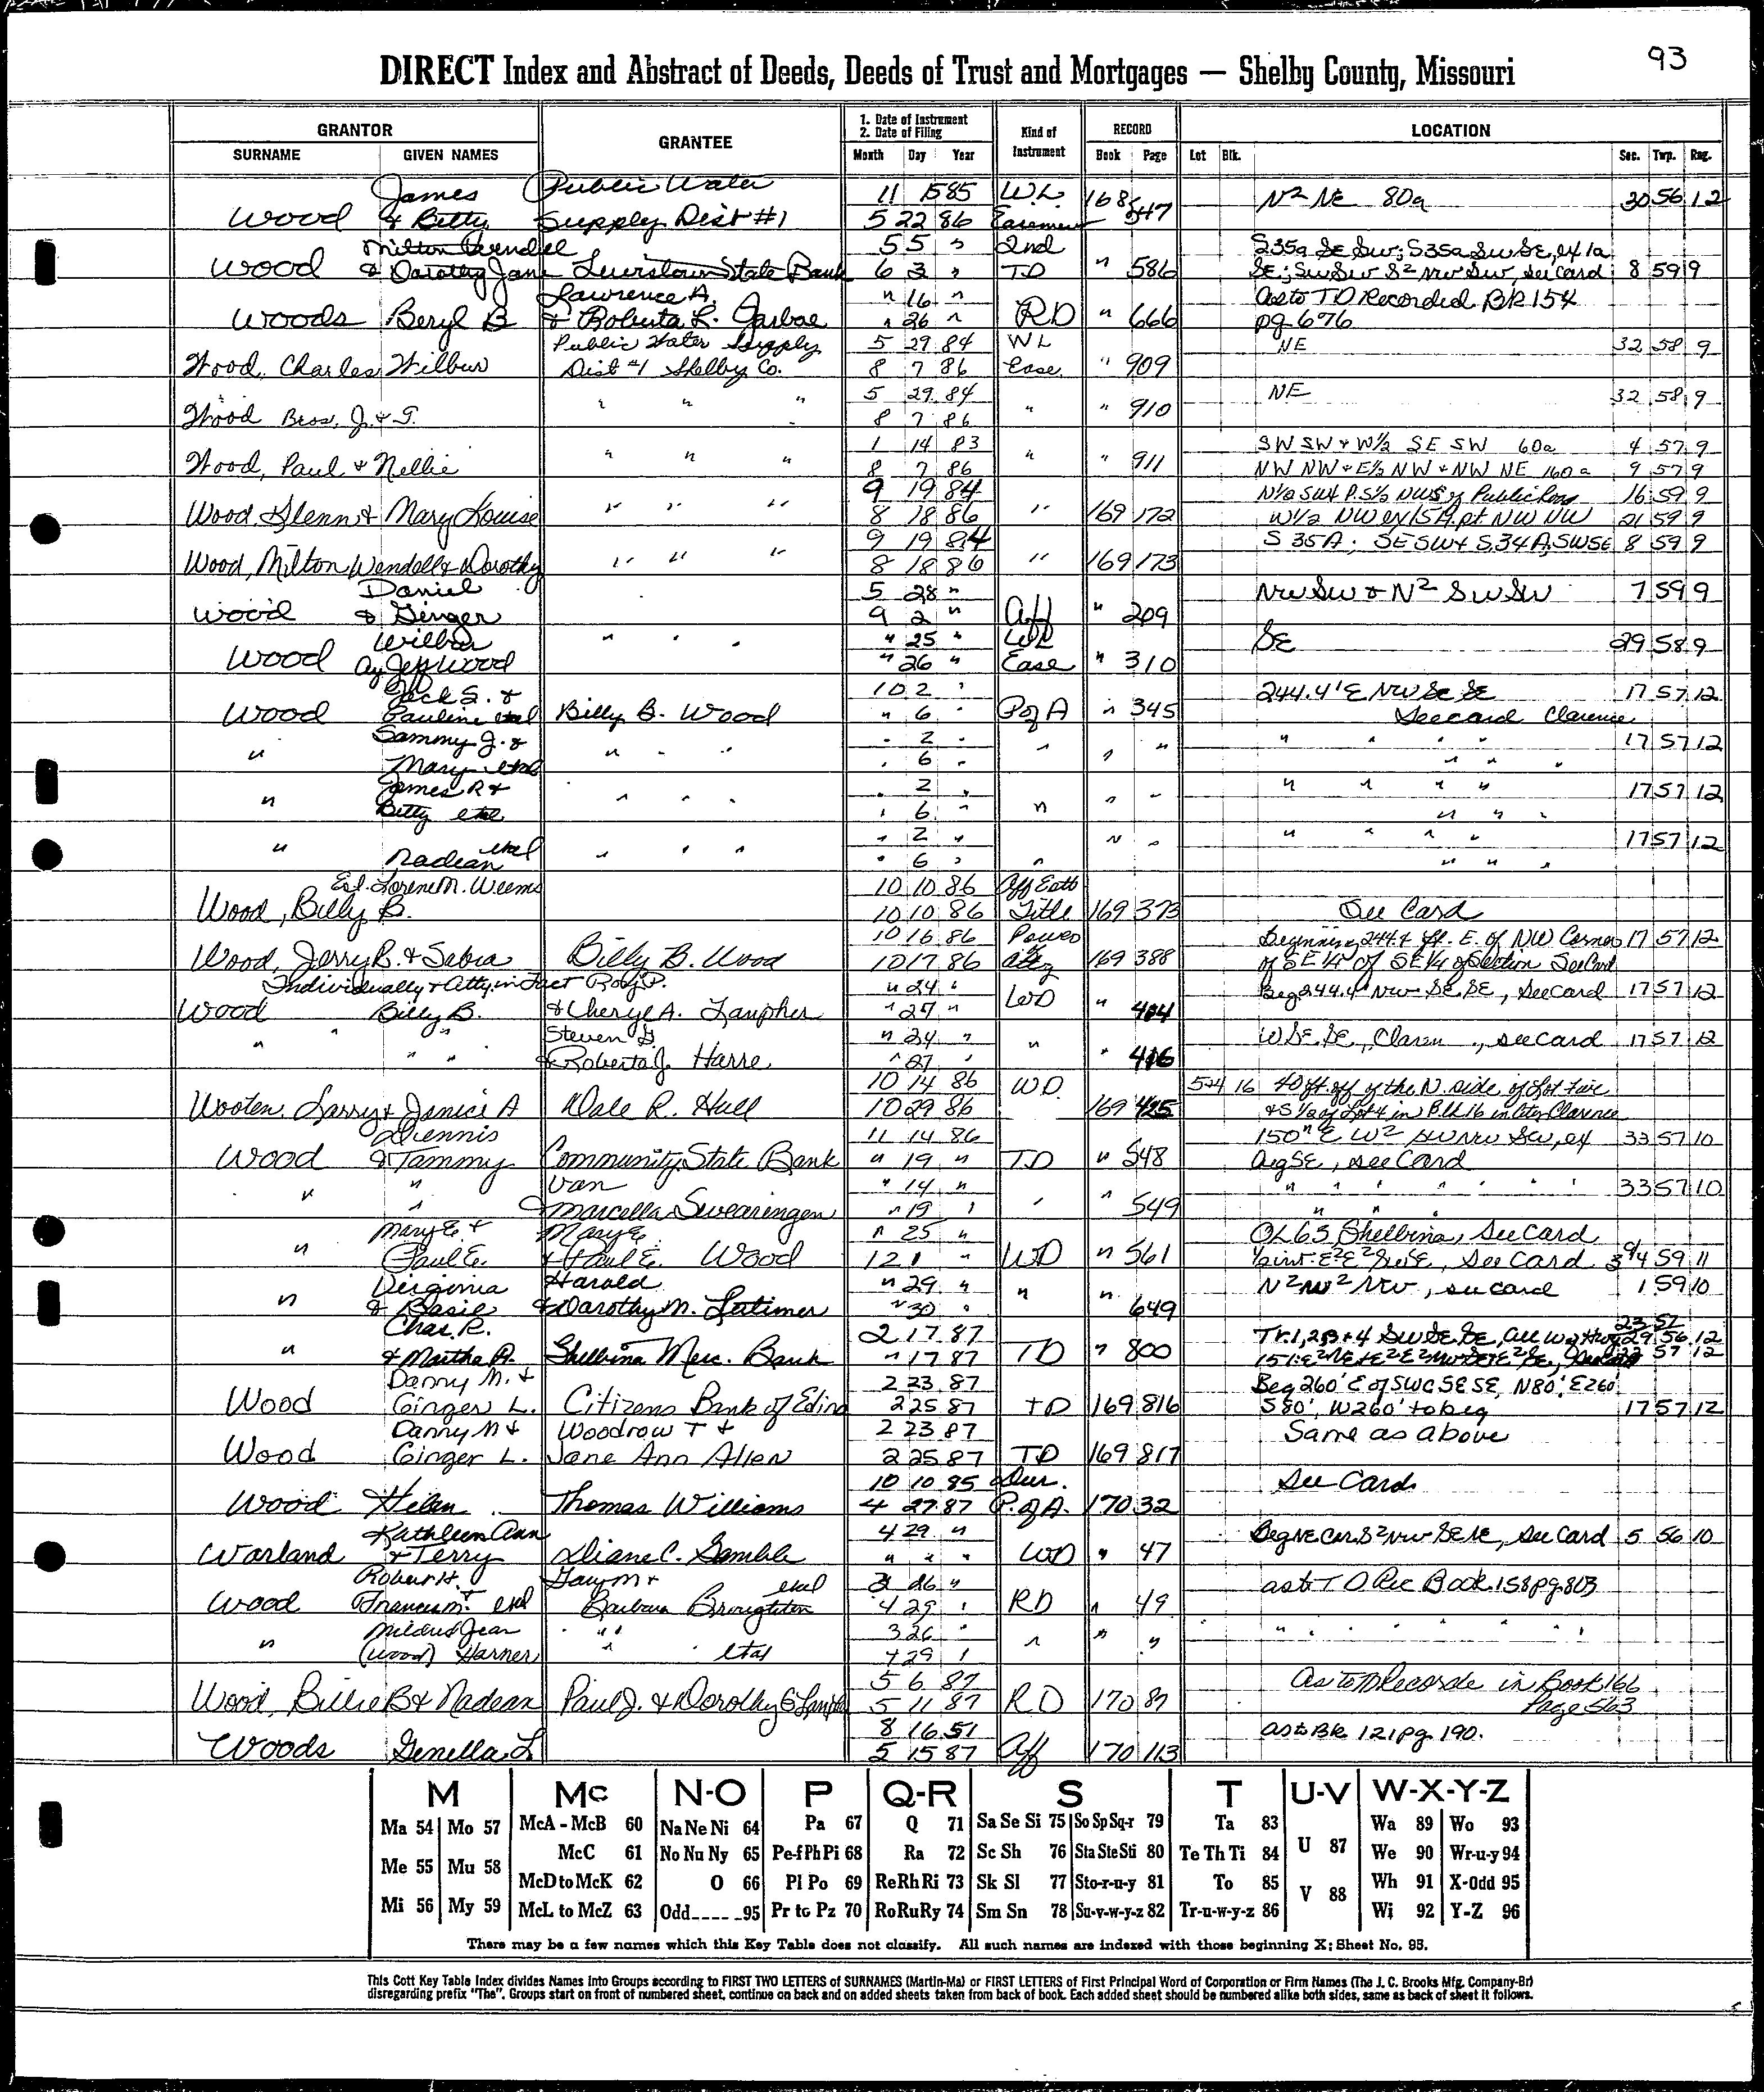 93
DIRECT Index and Abstract of Deeds, Deeds of Trust and Mortgages — Shelby County, Missouri
GRANTOR GRANTEE 1. Date of Instrument 2. Date of Filing Kind of Instrument RECORD LOCATION
SURNAME GIVEN NAMES Month Day Year Book Page Lot Blk. Sec. Twp. Rng.
James Public Water 11 15 85 W.L. 168 N² NE 80a 30 56 12
Wood & Betty Supply Dist #1 5 22 86 Easement 547
Milton Wendel 5 5 " 2nd S35a SE SW; S35a SW SE, ex 1a
Wood & Dorothy Jane Lewistown State Bank 6 3 " TD " 586 SE; SW SW S² NW SW, see card 8 59 9
Lawrence A. " 16 " as to TD Recorded Bk 154
Woods Beryl B & Roberta L. Garbae " 26 " RD " 666 pg 676
Public Water Supply 5 29 84 WL NE 32 58 9
Wood, Charles Wilbur Dist #1 Shelby Co. 8 7 86 Ease. " 909
5 29 84 NE 32 58 9
Wood Bros. J. & G. " " " 8 7 86 " " 910
1 14 83 SW SW & W1/2 SE SW 60a 4 57 9
Wood, Paul & Nellie " " " 8 7 86 " " 911 NW NW & E1/2 NW & NW NE 160a 9 57 9
9 19 84 16 59 9
Wood Glenn & Mary Louise " " " 8 18 86 " 169 172 W1/2 NW ex 15A pt NW NW 21 59 9
9 19 84 S 35A; SE SW & S 34A, SWSE 8 59 9
Wood, Milton Wendell & Dorothy " " " 8 18 86 " 169 173
Daniel 5 28 " NW SW & N² SW SW 7 59 9
Wood & Ginger 9 2 " Aff " 209
Wilbur " 25 " WL SE 29 58 9
Wood By Jeff Wood " 26 " Ease " 310
Jack S. & 10 2 " 244.4' E NW SE SE 17 57 12
Wood Pauline etal Billy B. Wood " 6 " P of A " 345 See card Clarence
Sammy J. & " 2 " " " " " 17 57 12
" Mary etal " " " " 6 " " " " " " "
James R & " 2 " " " " " 17 57 12
" Betty etal " " " " 6 " " " " " " "
" 2 " " " " " 17 57 12
" Nadean etal " " " " 6 " " " " " " "
Est. Lorene M. Weems 10 10 86 Aff
Wood, Billy B. 10 10 86 Title 169 373 See Card
10 16 86 Power Beginning 244.4 ft. E. of NW Corner 17 57 12
Wood, Jerry B. & Sabra Billy B. Wood 10 17 86 atty 169 388 of SE 1/4 of SE 1/4 of Section See Card
Individually & Atty. in Fact Roy P. " 24 " Beg 244.4' NW SE SE, See Card 17 57 12
Wood Billy B. & Cheryl A. Lanpher " 27 " WD " 404
Steven G. " 24 " W SE SE, See Card 17 57 12
" " " & Roberta J. Harre " 27 " " " 416
10 14 86 WD 5&4 16 40 ft. off of the N. side of Lot five
Wooten, Larry & Janice A Dale R. Hall 10 29 86 169 425 & S 1/2 of Lot 4 in Blk 16 in city Clarence
Dennis 11 14 86 150' E W² SW NW SW, ex 33 57 10
Wood & Tammy Community State Bank " 19 " TD " 548 See Card
Van " 14 " " " " " " " 33 57 10
" " & Marcella Swearingen " 19 " " " 549 " " "
Mary E. & Mary E. " 25 " OL 65 Shelbina, See Card
" Paul E. & Paul E. Wood 12 1 " WD " 561 See Card 59 11
Virginia Harold " 29 " N² NW² NW, see card 1 59 10
" & Basil & Dorothy M. Latimer " 30 " " " 649
Chas. R. 2 17 87
" & Martha A. Shelbina Merc. Bank " 17 87 TD " 800
Danny M. & 2 23 87 Beg 260' E of SWC SE SE, N80', E260'
Wood Ginger L. Citizens Bank of Edina 2 25 87 TD 169 816 S80', W260' to beg 17 57 12
Danny M & Woodrow T & 2 23 87 Same as above
Wood Ginger L. Jane Ann Allen 2 25 87 TD 169 817
10 10 85 Dur. See Card
Wood Helen Thomas Williams 4 27 87 P. of A. 170 32
Kathleen Ann 4 29 " Beg NE cor S² NW SE NE, See Card 5 56 10
Worland & Terry Diane C. Gamble " " " WD " 47
Robert H. Gary M & etal 3 26 " as to T D Rec Book 158 pg 803
Wood Frances M. etal Barbara Broughton 4 29 " RD " 49
Mildred Jean " " 3 26 " " " " " "
" (Wood) Harner " etal 4 29 " " " "
5 6 87 As to TD Recorde in Book 166
Wood, Billie B & Nadean Paul J. & Dorothy 5 11 87 RD 170 87 Page 563
8 16 51 as to Bk 121 pg 190.
Woods Genella L 5 15 87 Aff 170 113
M Mc N-O P Q-R S T U-V W-X-Y-Z
Ma 54 Mo 57 McA - McB 60 Na Ne Ni 64 Pa 67 Q 71 Sa Se Si 75 So Sp Sq-r 79 Ta 83 U 87 Wa 89 Wo 93
Me 55 Mu 58 McC 61 No Nu Ny 65 Pe-f Ph Pi 68 Ra 72 Sc Sh 76 Sta Ste Sti 80 Te Th Ti 84 V 88 We 90 Wr-u-y 94
McD to McK 62 O 66 Pl Po 69 Re Rh Ri 73 Sk Sl 77 Sto-r-u-y 81 To 85 Wh 91 X-Odd 95
Mi 56 My 59 McL to McZ 63 Odd---- -95 Pr to Pz 70 Ro Ru Ry 74 Sm Sn 78 Su-v-w-y-z 82 Tr-u-w-y-z 86 Wi 92 Y-Z 96
There may be a few names which this Key Table does not classify. All such names are indexed with those beginning X; Sheet No. 95.
This Cott Key Table Index divides Names into Groups according to FIRST TWO LETTERS of SURNAMES (Martin-Ma) or FIRST LETTERS of First Principal Word of Corporation or Firm Names (The J. C. Brooks Mfg. Company-Br)
disregarding prefix "The". Groups start on front of numbered sheet, continue on back and on added sheets taken from back of book. Each added sheet should be numbered alike both sides, same as back of sheet it follows.